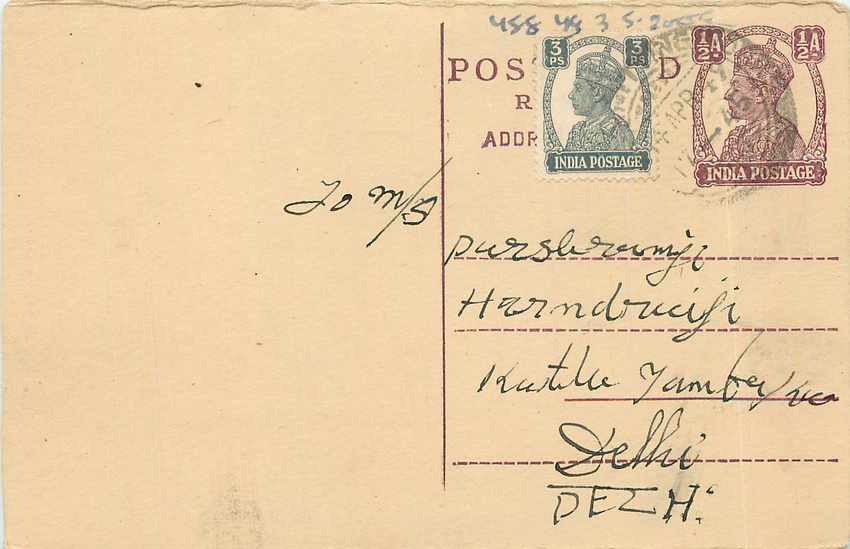 458 48 3 5.2000
POS D
R
ADDR
3 PS 3 PS
INDIA POSTAGE
½ ½A
INDIA POSTAGE
APR 47
To M/S
Pursbramji
Harndraiji
Katille Tambaku
Delhi
DELHi